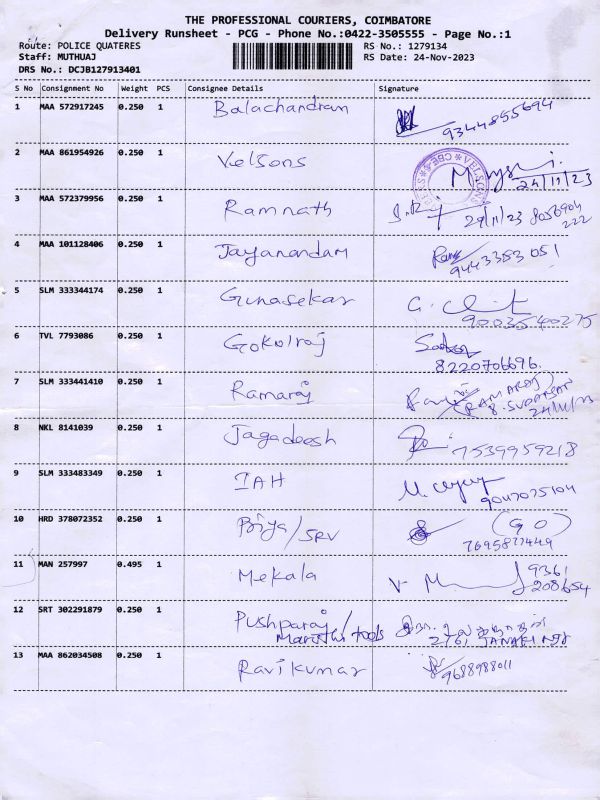 THE PROFESSIONAL COURIERS, COIMBATORE
Delivery Runsheet - PCG - Phone No.:0422-3505555 - Page No.:1
Route: POLICE QUATERES RS No.: 1279134
Staff: MUTHUAJ RS Date: 24-Nov-2023
DRS No.: DCJB127913401
S No Consignment No Weight PCS Consignee Details Signature
1 MAA 572917245 0.250 1 Balachandran 9344855694
2 MAA 861954926 0.250 1 Velsons 24/11/23
3 MAA 572379956 0.250 1 Ramnath 24/11/23 8056904
222
4 MAA 101128406 0.250 1 Jayanandam 9443353051
5 SLM 333344174 0.250 1 Gunasekar 9003540275
6 TVL 7793086 0.250 1 Gokulraj
8220706696.
7 SLM 333441410 0.250 1 Ramaraj (RAMARAJ)
24/11/23
8 NKL 8141039 0.250 1 Jagadeesh 7539959218
9 SLM 333483349 0.250 1 IAH 9047075104
10 HRD 378072352 0.250 1 Priya/SRV (GO)
7695877449
11 MAN 257997 0.495 1 Mekala 9361
208654
12 SRT 302291879 0.250 1 Pushparaj/
Maruthi tools
13 MAA 862034508 0.250 1 Ravikumar 9688988011